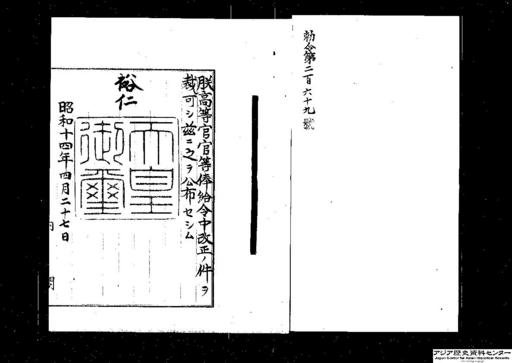 勅令第二百六十九號
朕高等官官等俸給令中改正ノ件ヲ
裁可シ茲ニ之ヲ公布セシム
裕仁
天皇
御璽
昭和十四年四月二十七日
内閣
アジア歴史資料センター
Japan Center for Asian Historical Records